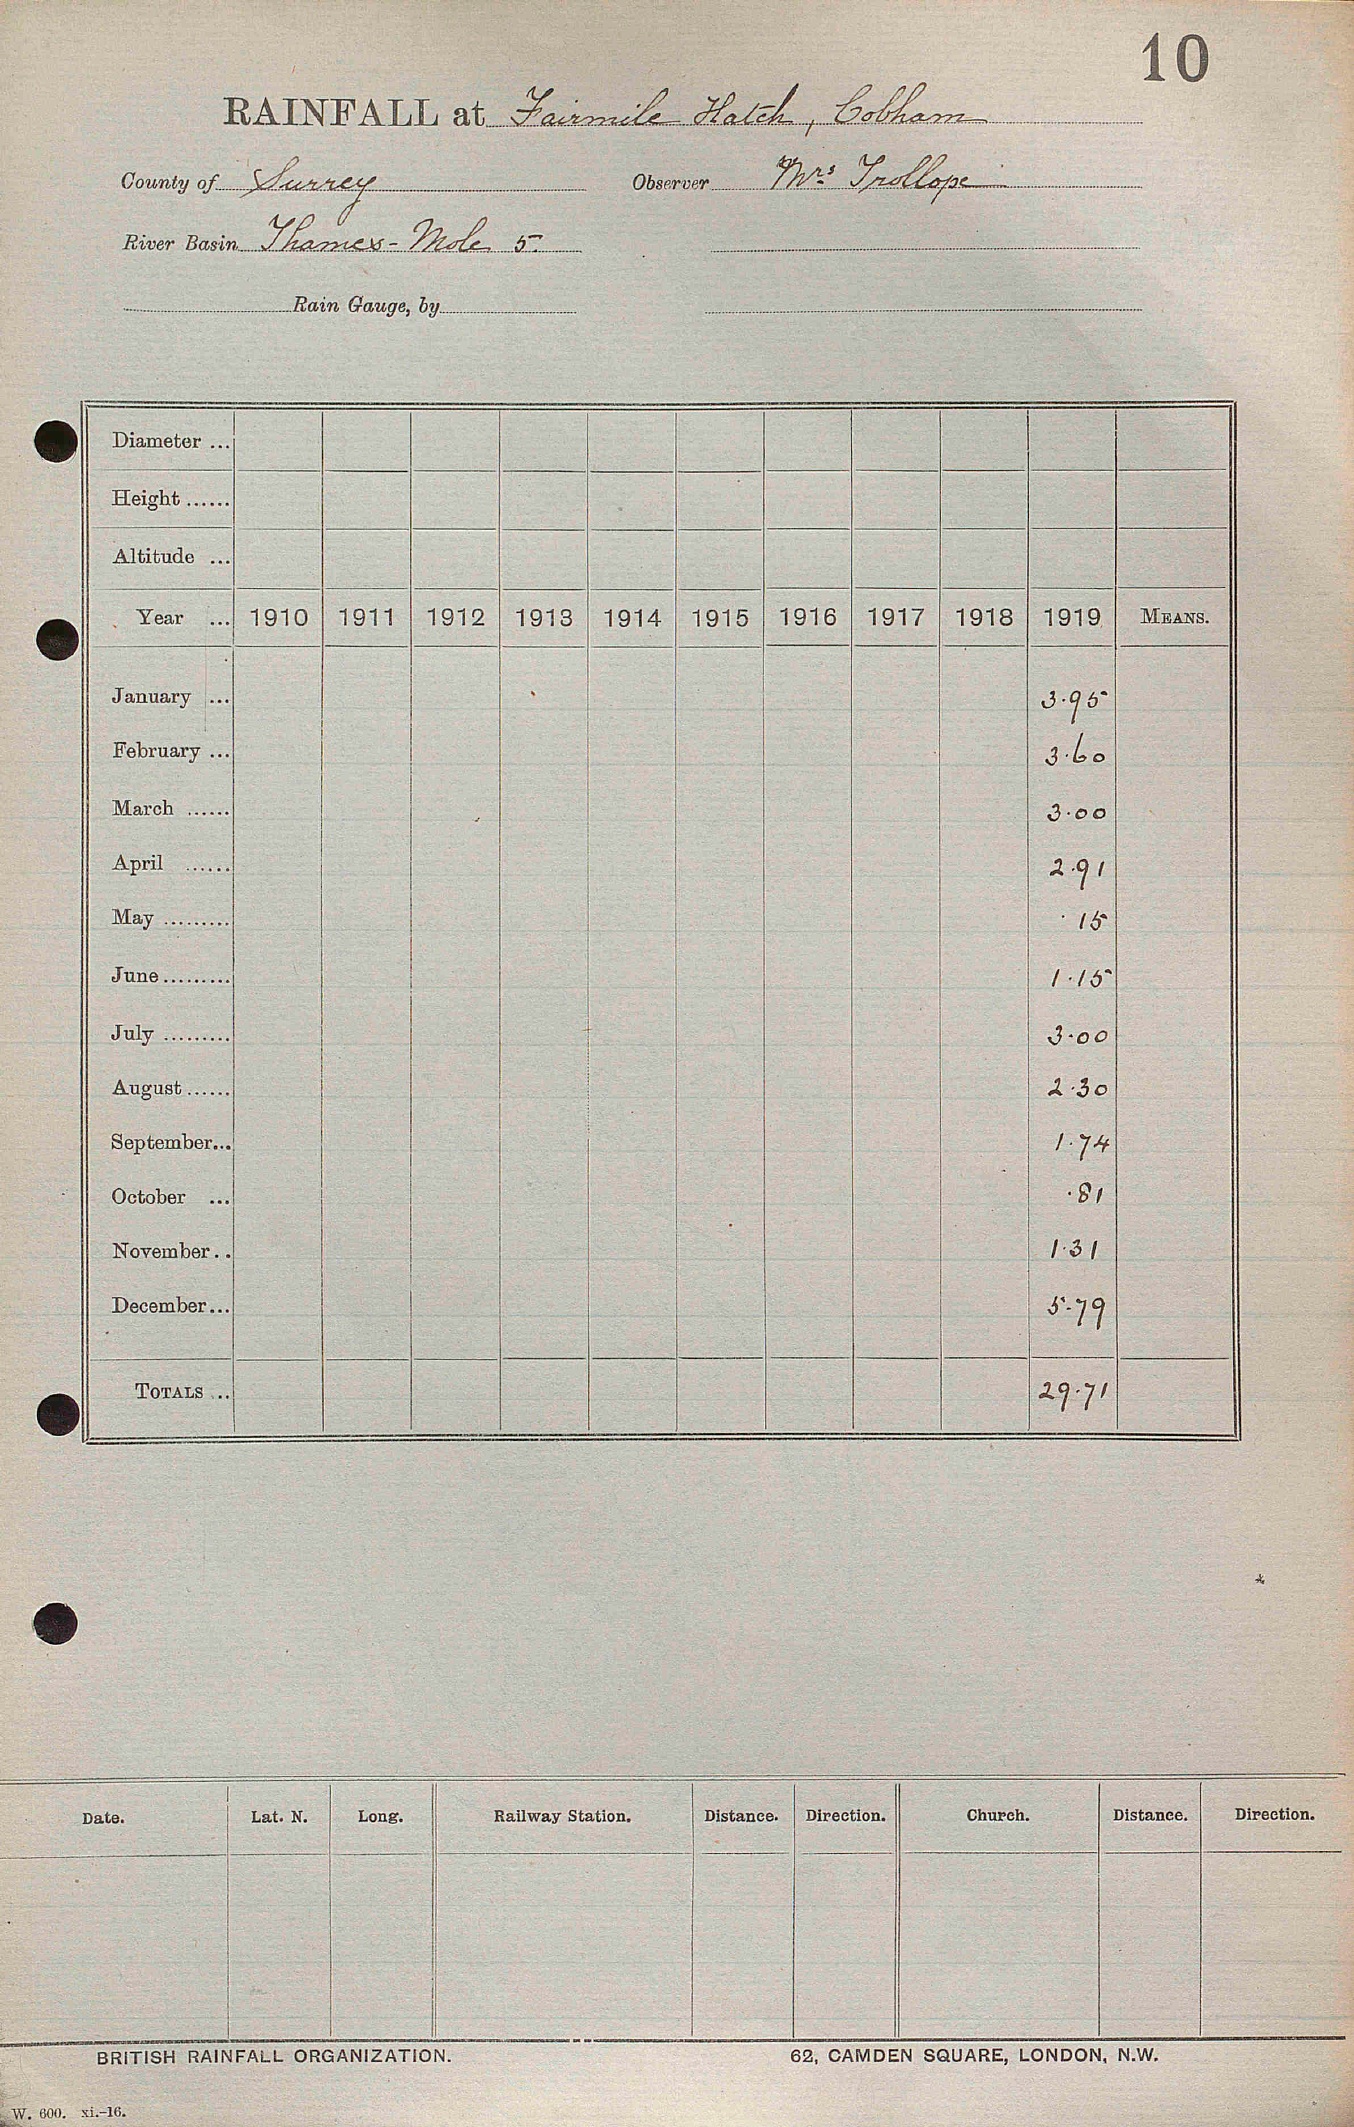 10
RAINFALL at Fairmile Hatch, Cobham
County of Surrey Observer Mrs Trollope
River Basin Thames - Mole 5.
Rain Gauge, by
Diameter ...
Height ......
Altitude ...
Year ... 1910 1911 1912 1913 1914 1915 1916 1917 1918 1919 MEANS.
January ... 3.95
February ... 3.60
March ...... 3.00
April ...... 2.91
May ......... .15
June ......... 1.15
July ......... 3.00
August ...... 2.30
September... 1.74
October ... .81
November .. 1.31
December... 5.79
TOTALS ... 29.71
Date. Lat. N. Long. Railway Station. Distance. Direction. Church. Distance. Direction.
BRITISH RAINFALL ORGANIZATION. 62, CAMDEN SQUARE, LONDON, N.W.
W. 600. xi.-16.